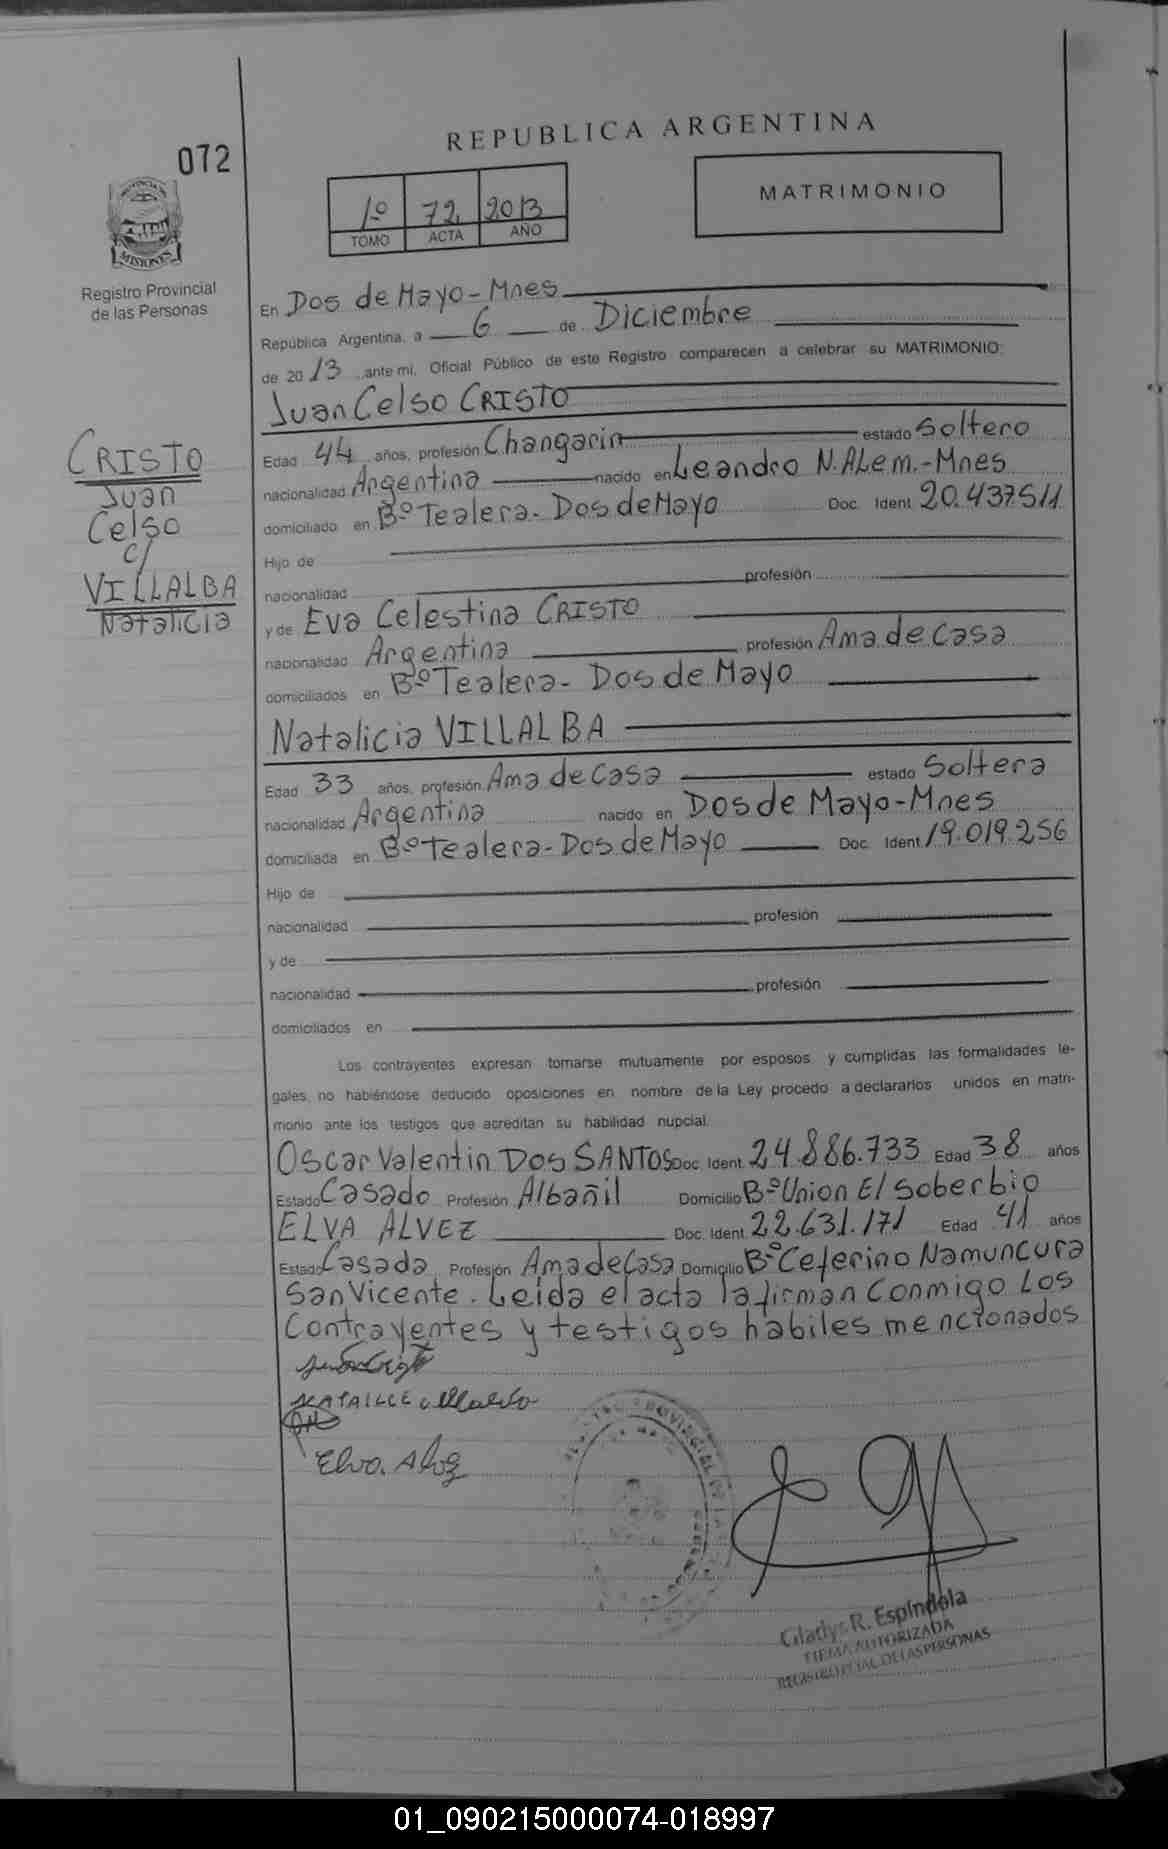 REPUBLICA ARGENTINA
072
1º 72 2013
TOMO ACTA AÑO
MATRIMONIO
PROVINCIA DE
MISIONES
Registro Provincial
de las Personas
En Dos de Mayo-Mnes
República Argentina, a 6 de Diciembre
de 2013, ante mi, Oficial Público de este Registro comparecen a celebrar su MATRIMONIO:
Juan Celso CRISTO
Edad 44 años, profesión Changarin estado Soltero
nacionalidad Argentina nacido en Leandro N. ALem.-Mnes
domiciliado en Bº Tealera- Dos de Mayo Doc. Ident. 20.437.511
Hijo de
nacionalidad profesión
y de Eva Celestina CRISTO
nacionalidad Argentina profesión Ama de casa
domiciliados en Bº Tealera- Dos de Mayo
Natalicia VILLALBA
Edad 33 años, profesión Ama de casa estado Soltera
nacionalidad Argentina nacido en Dos de Mayo-Mnes
domiciliada en Bº Tealera-Dos de Mayo Doc. Ident. 19.019.256
Hijo de
nacionalidad profesión
y de
nacionalidad profesión
domiciliados en
CRISTO
Juan
Celso
c/
VILLALBA
Natalicia
Los contrayentes expresan tomarse mutuamente por esposos y cumplidas las formalidades le-
gales, no habiéndose deducido oposiciones en nombre de la Ley procedo a declararlos unidos en matri-
monio ante los testigos que acreditan su habilidad nupcial.
Oscar Valentin Dos SANTOS Doc. Ident. 24.886.733 Edad 38 años
Estado Casado Profesión Albañil Domicilio Bº Union El Soberbio
ELVA ALVEZ Doc. Ident. 22.631.171 Edad 41 años
Estado Casada Profesión Ama de Casa Domicilio Bº Ceferino Namuncura
San Vicente. Leida el acta la firman Conmigo Los
Contrayentes y testigos habiles mencionados
Elva. Alvez
Gladys R. Espíndola
FIRMA AUTORIZADA
REGISTRO PCIAL. DE LAS PERSONAS
01_090215000074-018997